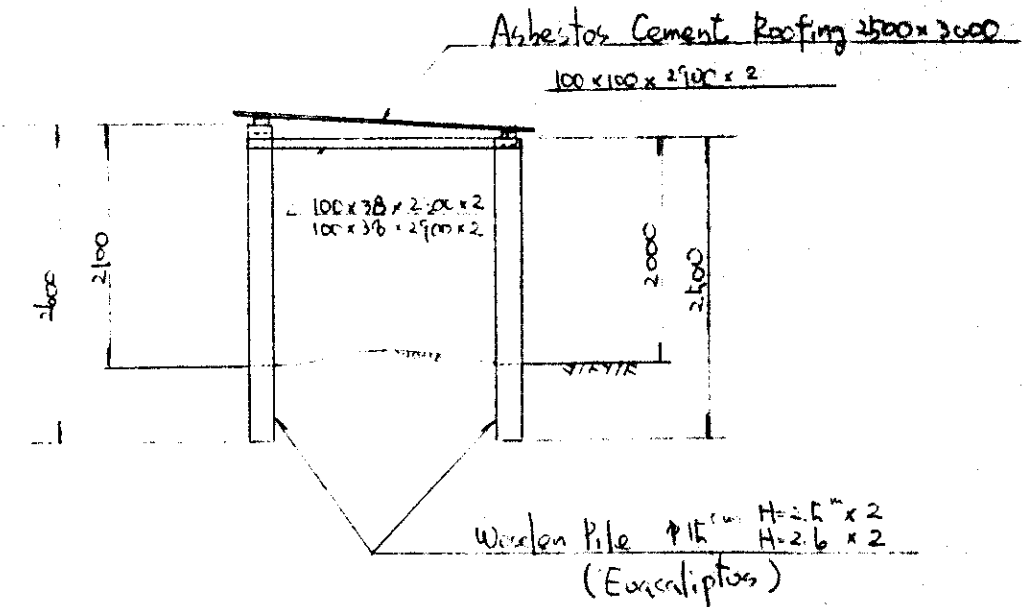 Asbestos Cement Roofing 2500 x 3000
100 x 100 x 2900 x 2
100 x 38 x 2 x 2
100 x 38 x 2900 x 2
2600
2100
2000
2500
Wooden Pile H=2.5m x 2
H=2.6 x 2
(Euacaliptus)